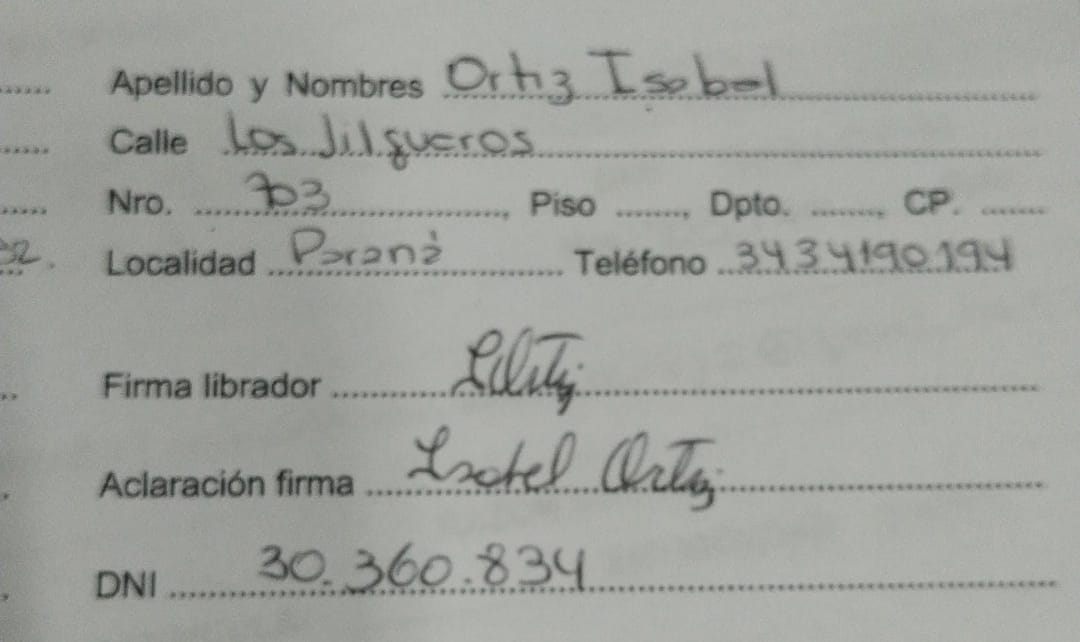 Apellido y Nombres Ortiz Isabel
Calle Los Jilgueros
Nro. 703, Piso ........, Dpto. ........, CP. ........
Localidad Paraná Teléfono 3434190194
Firma librador
Aclaración firma Isabel Ortiz
DNI 30.360.834